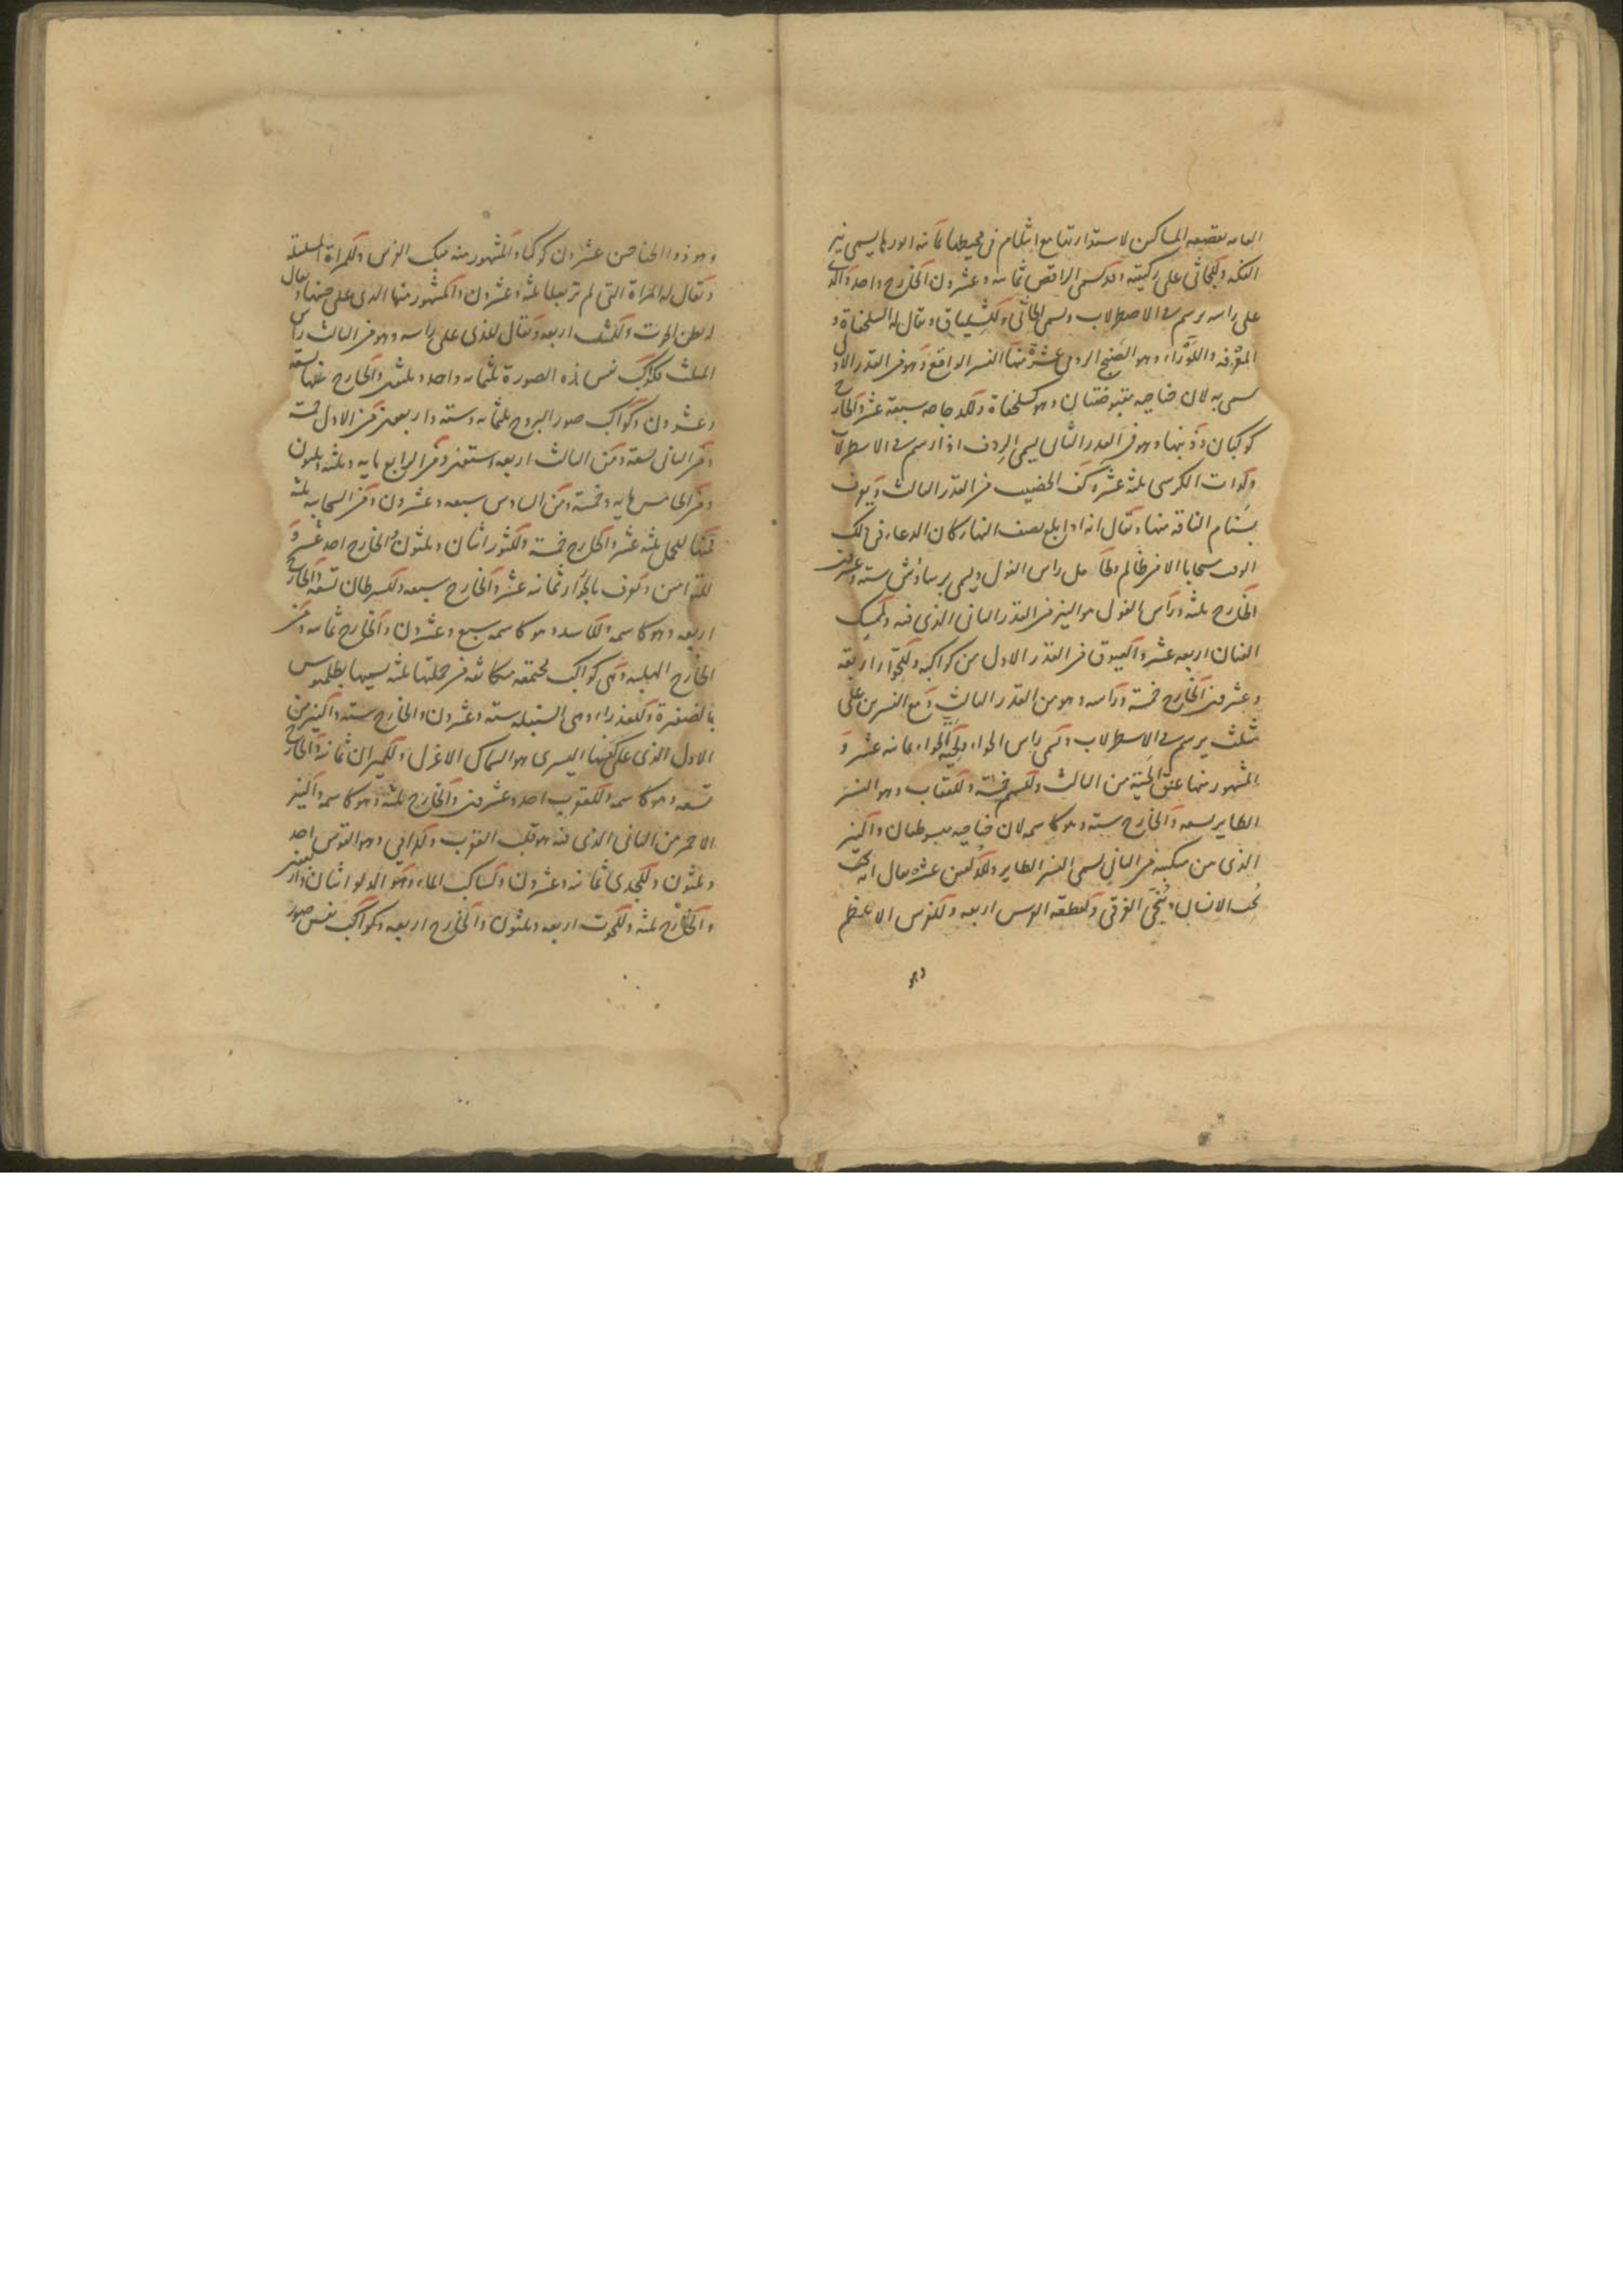 العامه بقصعه المساكين لاستدارتها مع انثلام فى محيطها ثمانه انورها يسمى نير
الفكه وللجاثى على ركبتيه وقد يسمى الراقص ثمانه وعشرون الخارج واحد والذى
على راسه يرسم فى الاصطرلاب ويسمى الجاثى وللشلياق ويقال له السلحفاة و
المعرفه واللوراء وهو الصنج الرومى عشرة منها النسر الواقع وهو من القدر الاول
سمى به لان جناحيه مقبوضتان وهو كسلحفاة وللدجاجه سبعة عشر والخارج
كوكبان وذنبها وهو من القدر الثانى يسمى الردف اذا رسم فى الاسطرلاب
ولذات الكرسى ثلثه عشر وكف الخضيب من القدر الثالث ويعرف
بسنام الناقه منها ويقال انه اذا بلغ نصف النهار كان الدعاء فى ذلك
الوقت مستجابا الا من ظالم ولحامل راس الغول ويسمى برساوش سته وعشرون
الخارج ثلثه وراس الغول هو النير من القدر الثانى الذى فيه ولممسك
العنان اربعه عشر والعيوق من القدر الاول من كواكبه وللحوّا اربعة
وعشرون الخارج خمسة وراسه وهو من القدر الثالث ومع النسرين على
مثلث يرسم فى الاسطرلاب ويسمى راس الحواء ولحيّة الحواء ثمانه عشر و
المشهور منها عنق الحيّة من الثالث وللسهم خمسة وللعقاب وهو النسر
الطاير تسعه والخارج سته وهو كاسمه لان جناحيه مبسوطتان والنير
الذى بين منكبيه من الثانى يسمى النسر الطاير وللدلفين عشره يقال انه
يحب الانسان وينجى الغرقى ولقطعه الفرس اربعه وللفرس الاعظم
وهو
وهو ذوا الجناحين عشرون كوكبا والمشهور منه منكب الفرس وللمراة المسلسلة
ويقال لها المراة التى لم تر بعلا ثلثه وعشرون والمشهور منها الذى على جنبها ويقال
له بطن الحوت وللمثلث اربعه ويقال للذى على راسه وهو من الثالث راس
المثلث فكواكب نفس هذه الصورة ثلثمايه واحد وثلثون والخارج عنها تسعه
وعشرون وكواكب صور البروج ثلثمايه وسته واربعون من الاول خمسة
ومن الثانى تسعه ومن الثالث اربعه وستون ومن الرابع مايه وثلثه وثلثون
ومن الخامس مايه وخمسة ومن السادس سبعه وعشرون ومن السحابيه ثلثه
فمنها للحمل ثلثه عشر والخارج خمسة وللثور اثنان وثلثون والخارج احد عشر و
للتوامين ويعرف بالجوزا ثمانه عشر والخارج سبعه وللسرطان تسعه والخارج
اربعه وهو كاسمه وللاسد وهو كاسمه سبع وعشرون والخارج ثمانه ومن
الخارج الهلبه وهى كواكب مجتمعه متكاثفه من جملتها ثلثه يسميها بطلميوس
بالضفيرة وللعذراء وهى السنبله سته وعشرون والخارج سته والنير من
الاول الذى على كفها اليسرى هو السماك الاعزل وللميزان ثمانه والخارج
تسعه وهو كاسمه وللعقرب احد وعشرون والخارج ثلثه وهو كاسمه والنير
الاحمر من الثانى الذى فيه هو قلب العقرب وللرامي وهو القوس احد
وثلثون وللجدى ثمانه وعشرون ولساكب الماء وهو الدلو اثنان واربعون
والخارج ثلثه وللحوت اربعه وثلثون والخارج اربعه وكواكب نفس صور